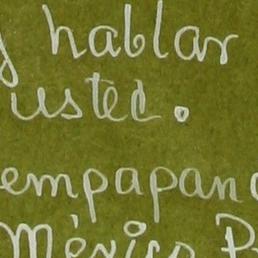 y hablar
usted.
empapan
México P